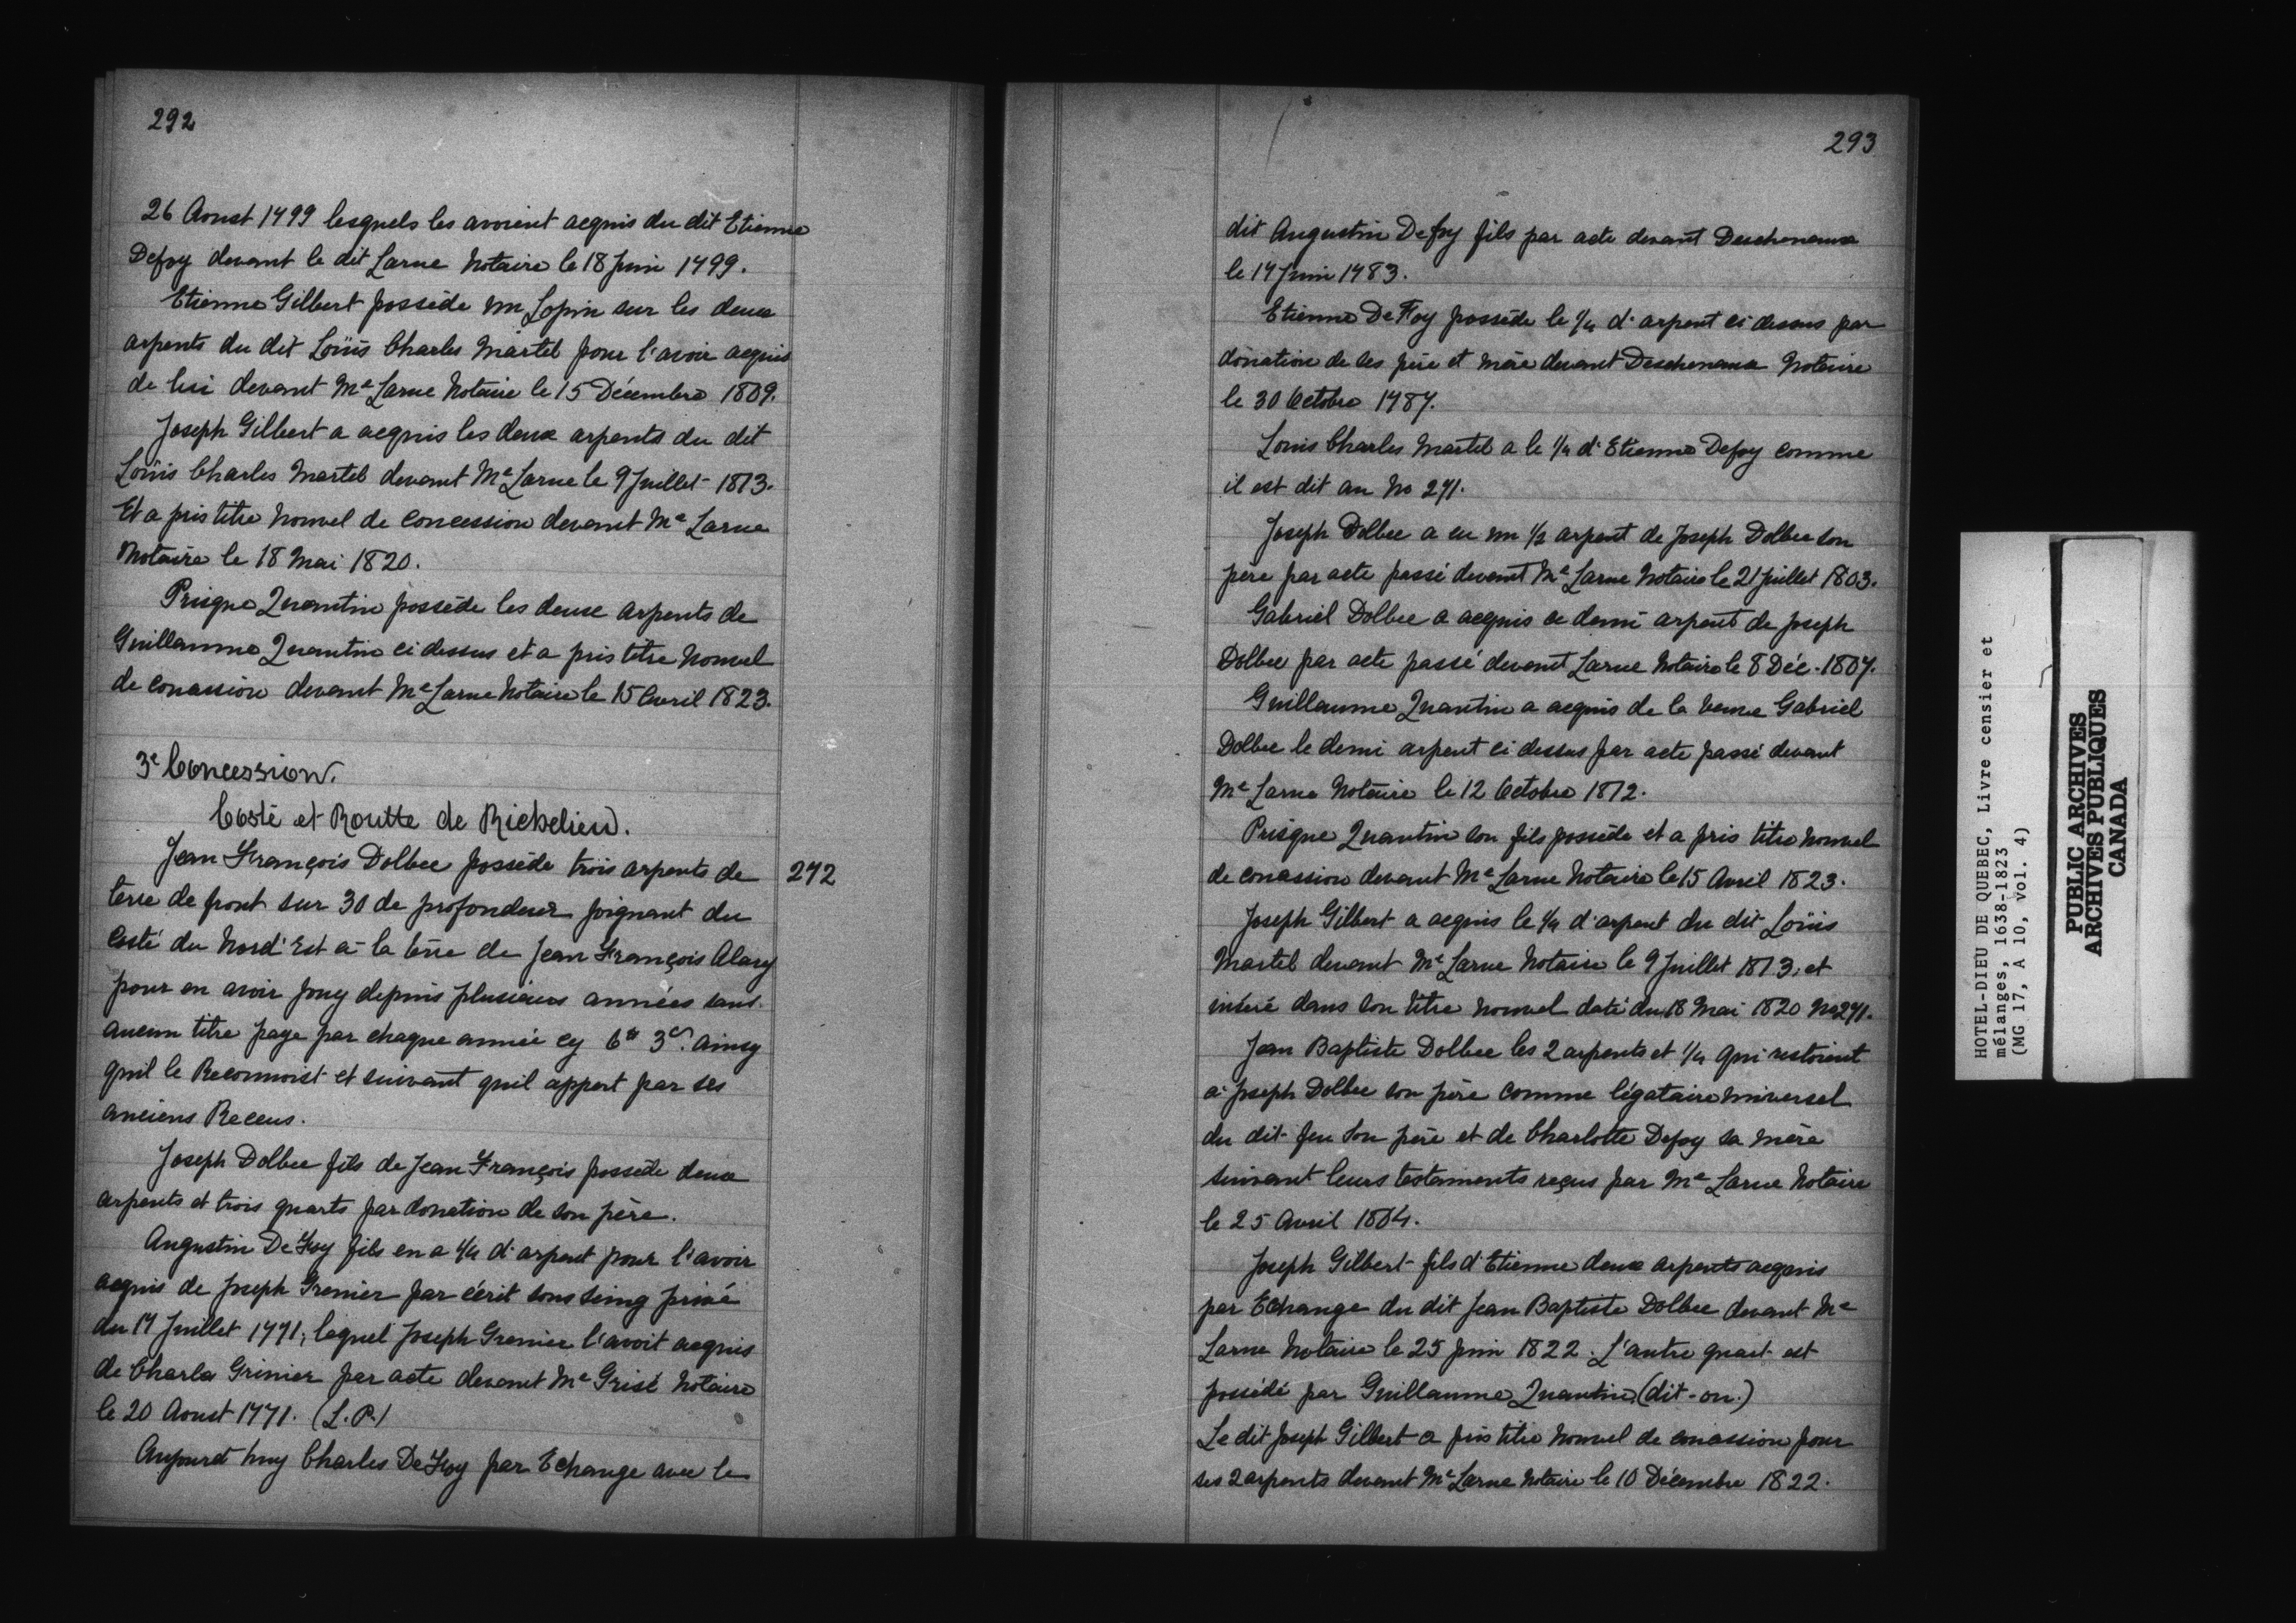 292
26 Aoust 1799 lesquels les avoient acquis du dit Etienne
Defoy devant le dit Larue Notaire le 18 Juin 1799.
Etienne Gilbert possède un Lopin sur les deux
arpents du dit Loüis Charles Martel pour l'avoir acquis
de lui devant Me Larue Notaire le 15 Décembre 1809.
Joseph Gilbert a acquis les deux arpents du dit
Loüis Charles Martel devant Me Larue le 9 Juillet 1813.
Et a pris titre Nouvel de Concession devant Me Larue
Notaire le 18 Mai 1820.
Prisque Quantin possède les deux arpents de
Guillaume Quantin ci dessus et a pris titre Nouvel
de concession devant Me Larue Notaire le 15 Avril 1823.
3e Concession.
Costé et Routte de Richelieu.
Jean François Dolbec possède trois arpents de 272
terre de front sur 30 de profondeur joignant du
Costé du Nord'Est à la terre de Jean François Alary
pour en avoir jouy depuis plusieurs années sans
aucun titre paye par chaque année cy 6# 3s. ainsy
quil le Reconnoist et suivant quil appert par ses
anciens Receus.
Joseph Dolbec fils de Jean François possède deux
arpents et trois quarts par donation de son père.
Augustin DeFoy fils en a 1/4 d'arpent pour l'avoir
acquis de Joseph Grenier par écrit sous seing privé
du 17 Juillet 1771, lequel Joseph Grenier l'avoit acquis
de Charles Grinier par acte devant Me Grisé Notaire
le 20 Aoust 1771. (L.P.)
Aujourd'huy Charles DeFoy par Echange avec le
293
dit Augustin Defoy fils par acte devant Deschenaux
le 17 Juin 1783.
Etienne DeFoy possède le 1/4 d'arpent ci dessus par
donation de ses père et mère devant Deschenaux Notaire
le 30 Octobre 1787.
Louis Charles Martel a le 1/4 d'Etienne Defoy comme
il est dit au No 271.
Joseph Dolbec a eu un 1/2 arpent de Joseph Dolbec son
père par acte passé devant Me Larue Notaire le 21 Juillet 1803.
Gabriel Dolbec a acquis ce demi arpent de Joseph
Dolbec par acte passé devant Larue Notaire le 8 Déc. 1807.
Guillaume Quantin a acquis de la veuve Gabriel
Dolbec le demi arpent ci dessus par acte passé devant
Me Larue Notaire le 12 Octobre 1812.
Prisque Quantin son fils possède et a pris titre Nouvel
de concession devant Me Larue Notaire le 15 Avril 1823.
Joseph Gilbert a acquis le 1/4 d'arpent du dit Loüis
Martel devant Me Larue Notaire le 9 Juillet 1813, et
inséré dans son titre nouvel daté du 18 Mai 1820 No 271.
Jean Baptiste Dolbec les 2 arpents et 1/4 qui restoient
à Joseph Dolbec son père comme légataire universel
du dit feu son père et de Charlotte Defoy sa mère
suivant leurs testaments reçus par Me Larue Notaire
le 25 Avril 1804.
Joseph Gilbert fils d'Etienne deux arpents acquis
par Echange du dit Jean Baptiste Dolbec devant Me
Larue Notaire le 25 Juin 1822. L'autre quart est
possédé par Guillaume Quantin, (dit-on.)
Le dit Joseph Gilbert a pris titre Nouvel de concession pour
ses 2 arpents devant Me Larue Notaire le 10 Décembre 1822.
HOTEL-DIEU DE QUEBEC, Livre censier et
mélanges, 1638-1823
(MG 17, A 10, vol. 4)
PUBLIC ARCHIVES
ARCHIVES PUBLIQUES
CANADA